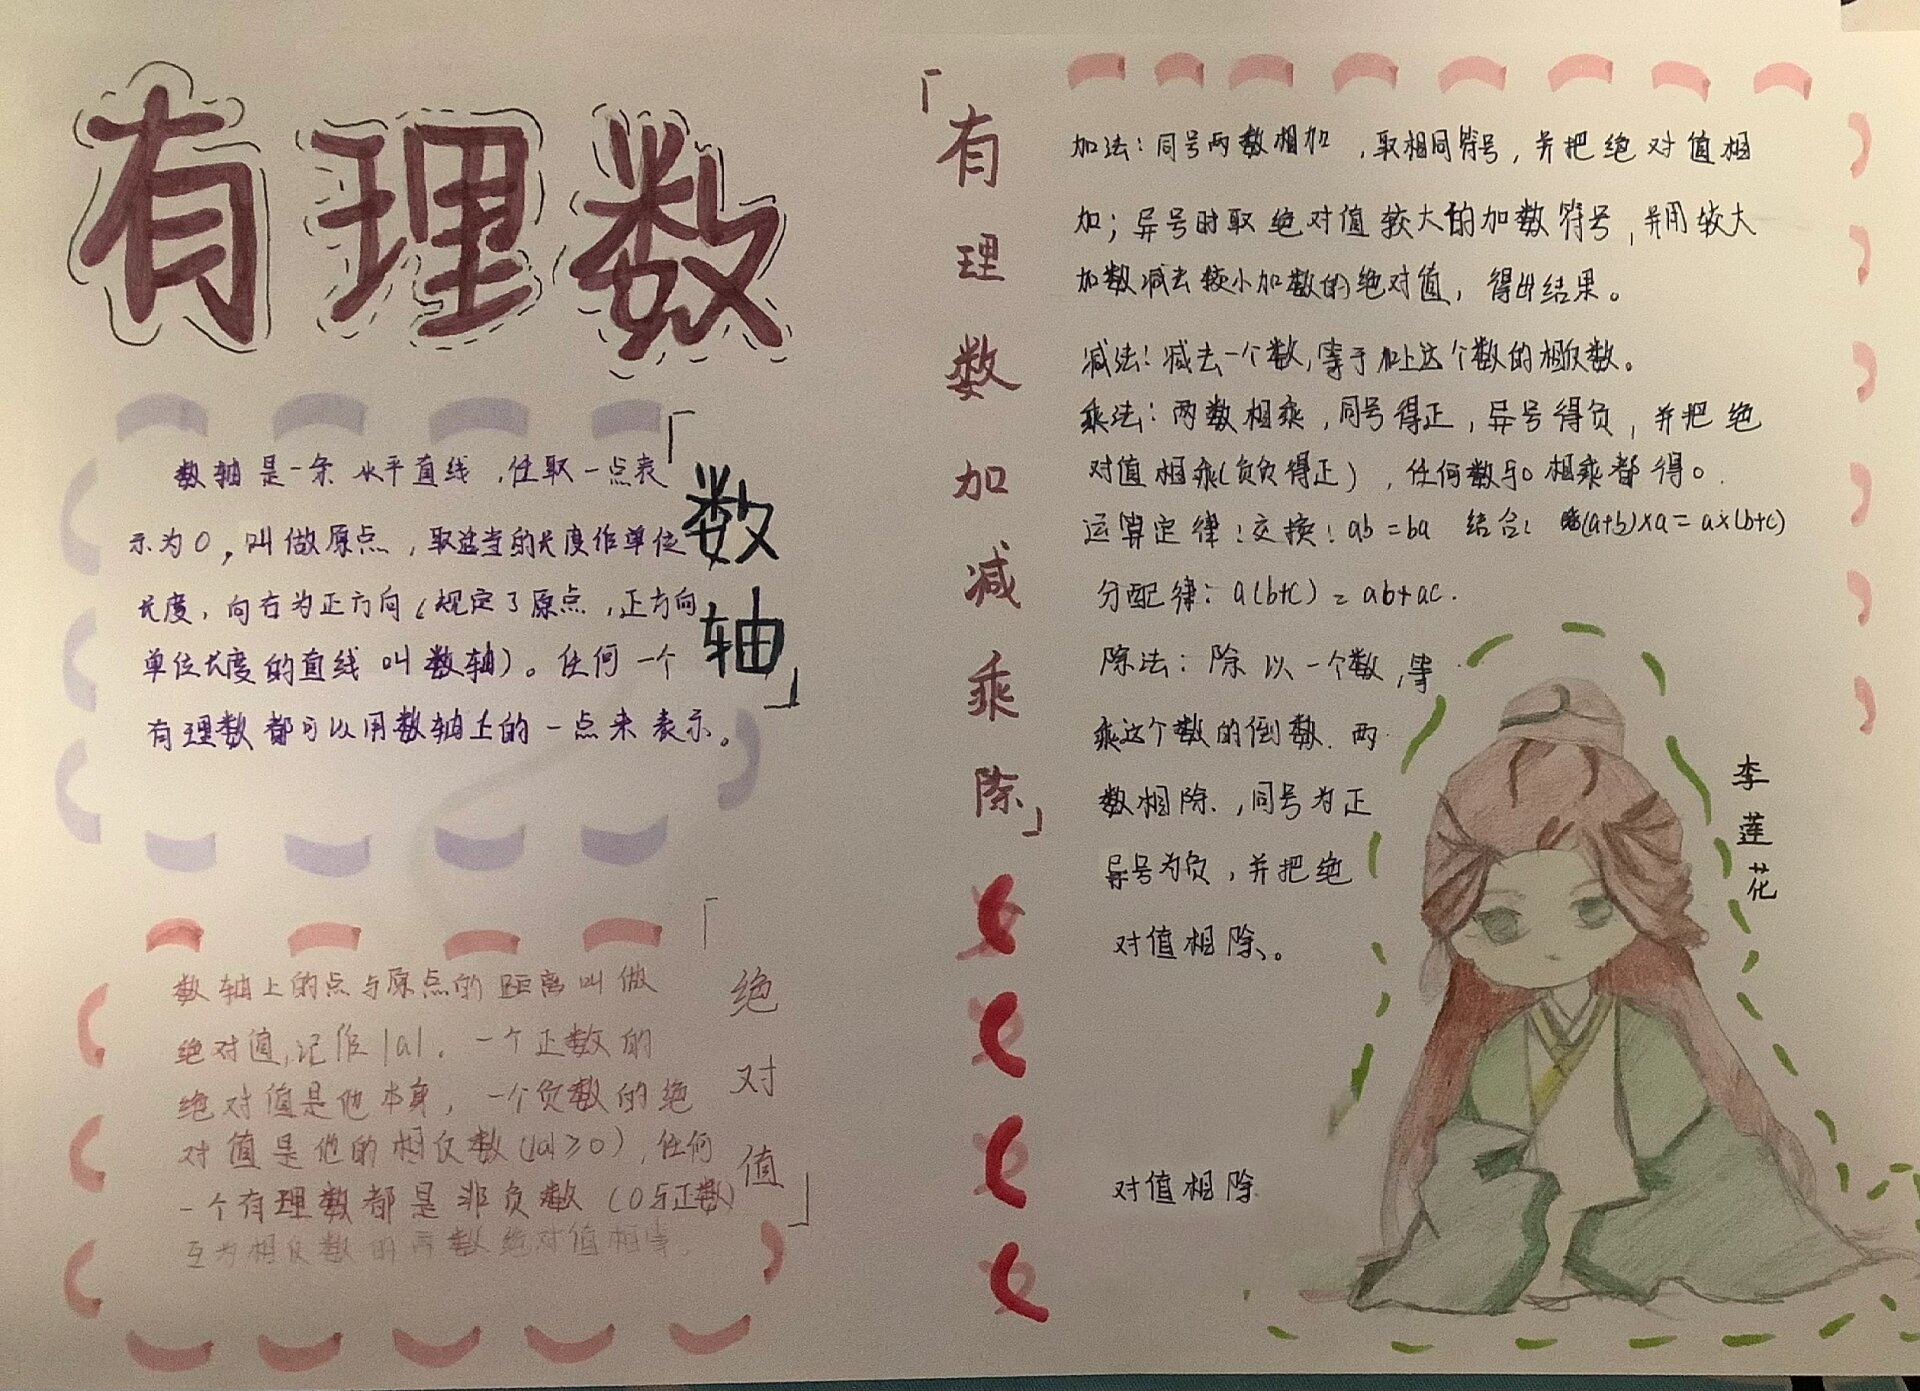 有理数
「数轴」
数轴是一条水平直线，任取一点表
示为0，叫做原点，取适当的长度作单位
长度，向右为正方向（规定了原点，正方向
单位长度的直线叫数轴）。任何一个
有理数都可以用数轴上的一点来表示。
「绝对值」
数轴上的点与原点的距离叫做
绝对值，记作|a|．一个正数的
绝对值是他本身，一个负数的绝
对值是他的相反数（|a|≥0），任何
一个有理数都是非负数（0与正数）
互为相反数的两数绝对值相等．
「有理数加减乘除」
加法：同号两数相加，取相同符号，并把绝对值相
加；异号时取绝对值较大的加数符号，并用较大
加数减去较小加数的绝对值，得出结果。
减法：减去一个数，等于加上这个数的相反数。
乘法：两数相乘，同号得正，异号得负，并把绝
对值相乘（负负得正），任何数与0相乘都得0．
运算定律：交换：ab=ba 结合：(a+b)×a=a×(b+c)
分配律：a(b+c)=ab+ac．
除法：除以一个数，等
乘这个数的倒数．两
数相除，同号为正
异号为负，并把绝
对值相除、。
对值相除
李莲花